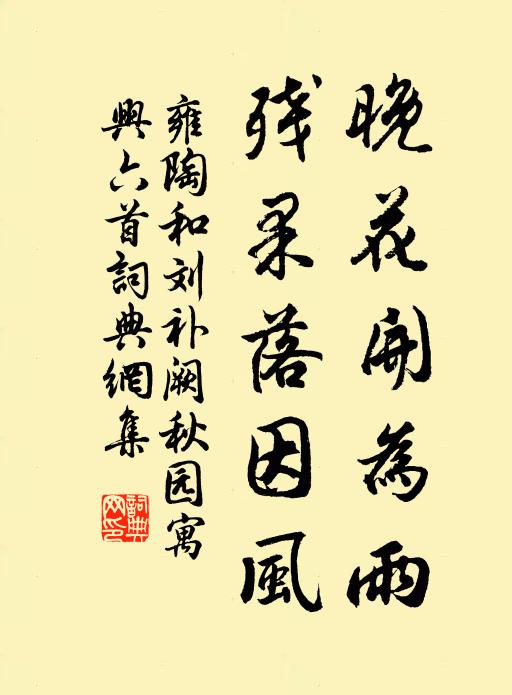 晚花開為雨
残果落因風
雍陶和刘补阙秋园寓
興六首詞典網集
詞典網印